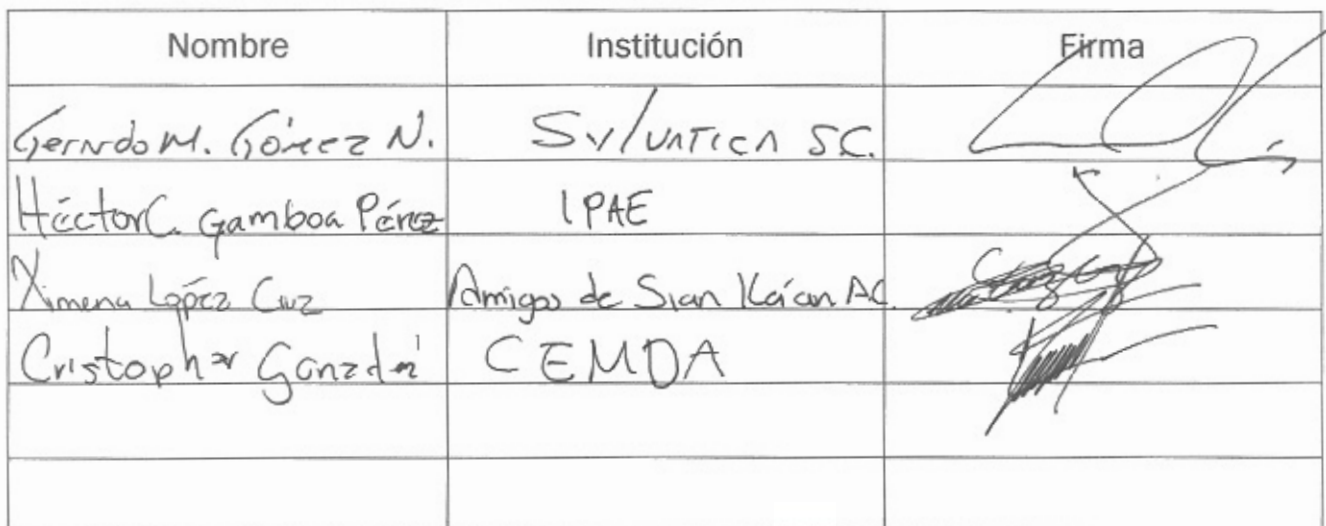 Nombre Institución Firma
Gerardo M. Gómez N. Sylvatica SC.
Héctor C. Gamboa Pérez IPAE
Ximena López Cruz Amigos de Sian Ka'an AC.
Cristopher González CEMDA